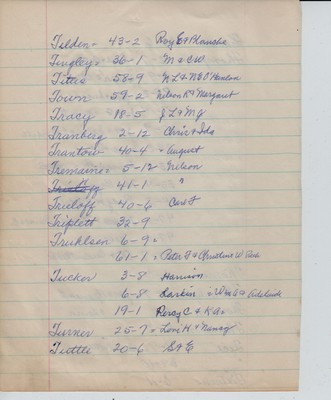 Tilden - 43-2 Roy E & Blanche
Tingley - 36-1 M & C.W.
Tittus 58-9 N.L. &
Town 59-2 Nelson R & Margaret
Tracy 18-5 J L & M J
Tranberg 2-12 Chris & Ida
Trantow 40-4 & August
Tremaine - 5-12 Nelson
41-1 "
Treloff 40-6 Carl F
Triplett 32-9
Truhlsen 6-9 =
61-1 = Peter F & Christine W
Tucker 3-8 Harrison
6-8 Larkin
19-1 Percy C & K A
Turner 25-7 = Levi H & Nancy
Tuttle 20-6 S & E